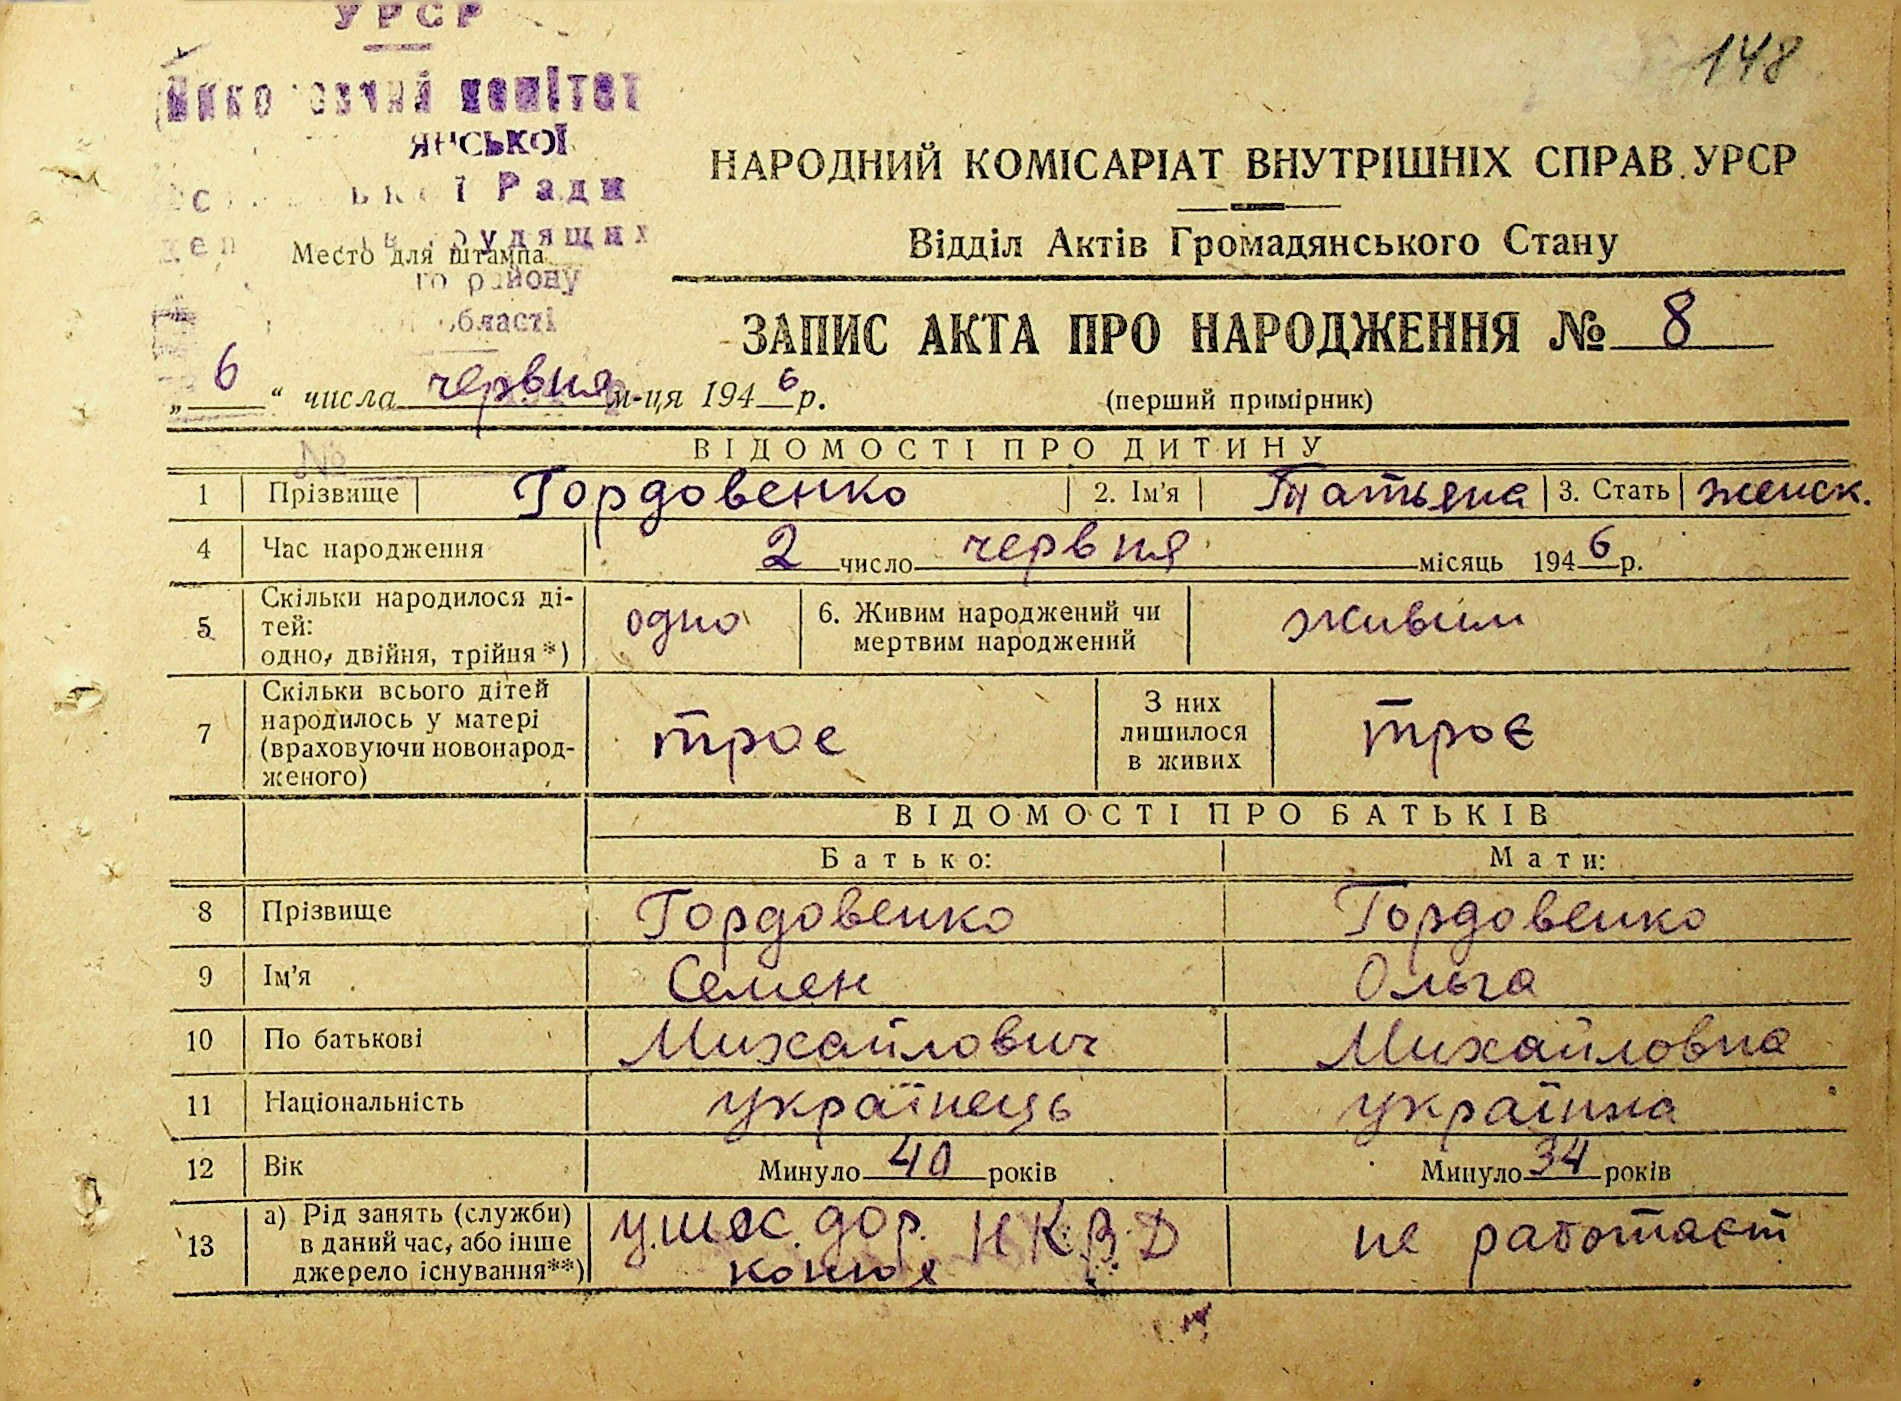 УРСР
148
комітет
ЯНСЬКОЇ
Ради
НАРОДНИЙ КОМІСАРІАТ ВНУТРІШНІХ СПРАВ УРСР
Место для штампа
Відділ Актів Громадянського Стану
го району
області
ЗАПИС АКТА ПРО НАРОДЖЕННЯ № 8
„ 6 “ числа червня м-ця 1946 р.
(перший примірник)
№
ВІДОМОСТІ ПРО ДИТИНУ
1 Прізвище Гордовенко 2. Ім'я Татьяна 3. Стать женск.
4 Час народження 2 число червня місяць 1946 р.
5 Скільки народилося ді-
тей:
одно, двійня, трійня*) одно 6. Живим народжений чи
мертвим народжений живим
7 Скільки всього дітей
народилось у матері
(враховуючи новонарод-
женого) трое З них
лишилося
в живих троє
ВІДОМОСТІ ПРО БАТЬКІВ
Батько: Мати:
8 Прізвище Гордовенко Гордовенко
9 Ім'я Семен Ольга
10 По батькові Михайлович Михайловна
11 Національність українець українка
12 Вік Минуло 40 років Минуло 34 років
13 а) Рід занять (служби)
в даний час, або інше
джерело існування**) дор. Н.К.В.Д
конюх не работает